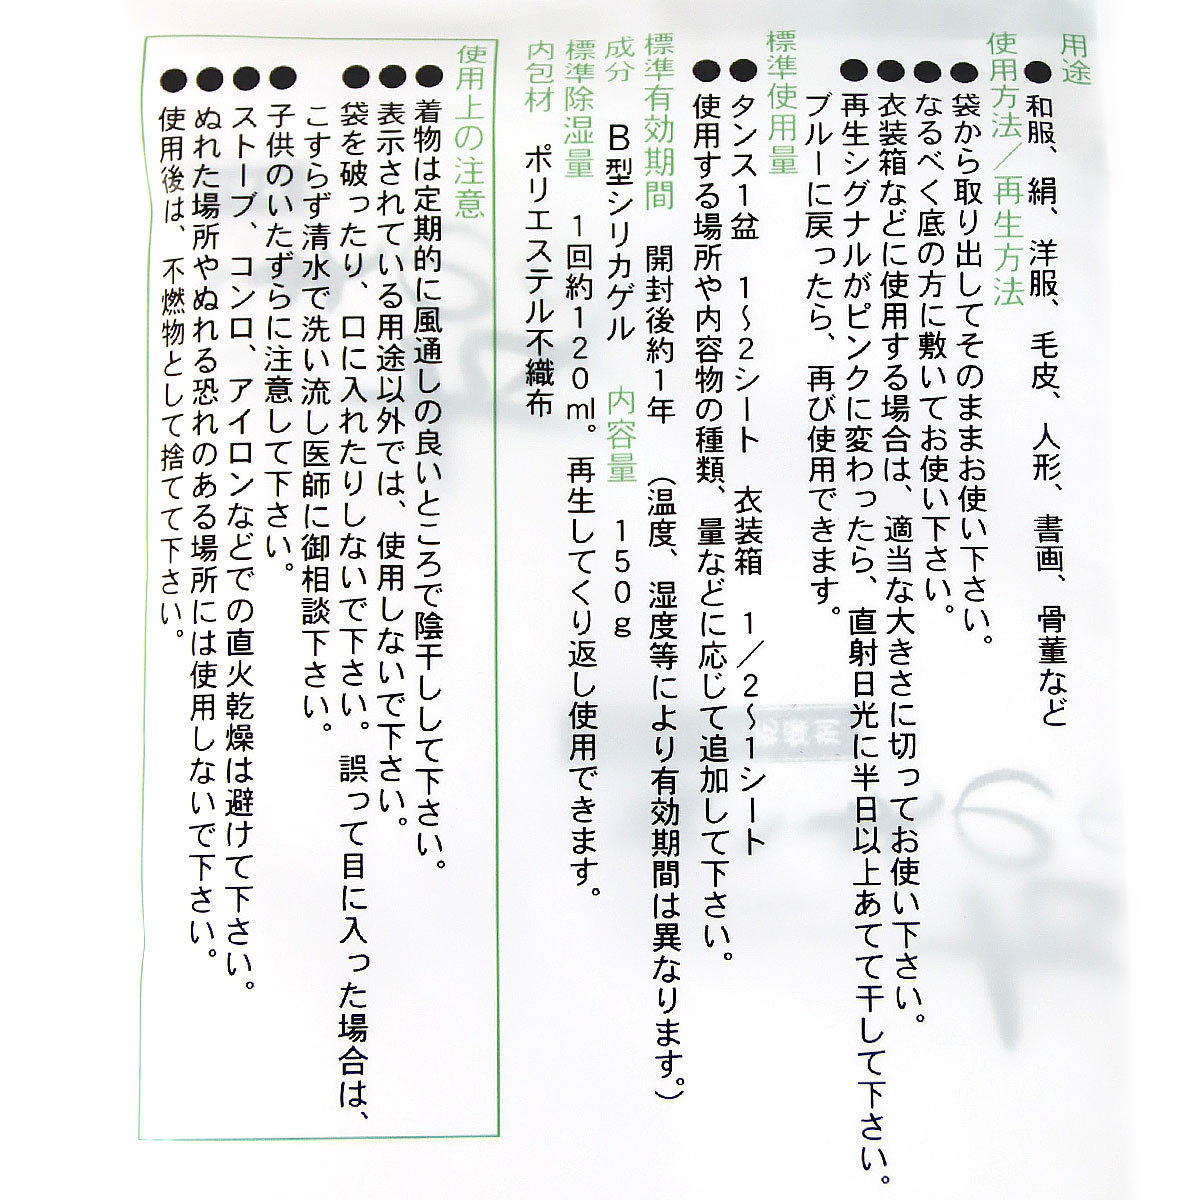 用途
●和服、絹、洋服、毛皮、人形、書画、骨董など
使用方法／再生方法
●袋から取り出してそのままお使い下さい。
●なるべく底の方に敷いてお使い下さい。
●衣装箱などに使用する場合は、適当な大きさに切ってお使い下さい。
●再生シグナルがピンクに変わったら、直射日光に半日以上あてて干して下さい。
ブルーに戻ったら、再び使用できます。
標準使用量
●タンス1盆　1～2シート　衣装箱　1／2～1シート
●使用する場所や内容物の種類、量などに応じて追加して下さい。
標準有効期間　開封後約1年　（温度、湿度等により有効期間は異なります。）
成分　B型シリカゲル　内容量　150g
標準除湿量　1回約120ml。再生してくり返し使用できます。
内包材　ポリエステル不織布
使用上の注意
●着物は定期的に風通しの良いところで陰干しして下さい。
●表示されている用途以外では、使用しないで下さい。
●袋を破ったり、口に入れたりしないで下さい。誤って目に入った場合は、
こすらず清水で洗い流し医師に御相談下さい。
●子供のいたずらに注意して下さい。
●ストーブ、コンロ、アイロンなどでの直火乾燥は避けて下さい。
●ぬれた場所やぬれる恐れのある場所には使用しないで下さい。
●使用後は、不燃物として捨てて下さい。